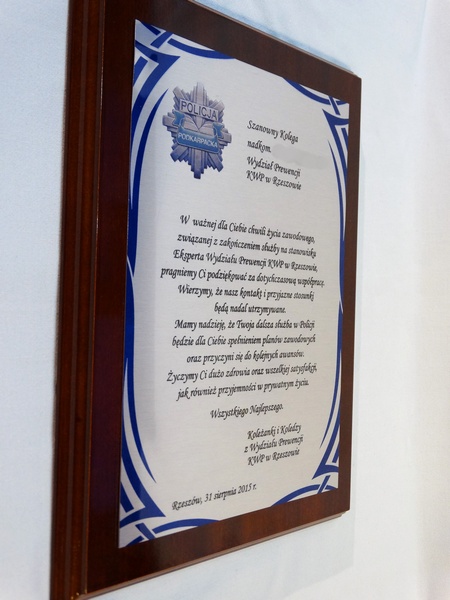 POLICJA
PODKARPACKA
Szanowny Kolega
nadkom.
Wydział Prewencji
KWP w Rzeszowie
W ważnej dla Ciebie chwili życia zawodowego,
związanej z zakończeniem służby na stanowisku
Eksperta Wydziału Prewencji KWP w Rzeszowie,
pragniemy Ci podziękować za dotychczasową współpracę.
Wierzymy, że nasz kontakt i przyjazne stosunki
będą nadal utrzymywane.
Mamy nadzieję, że Twoja dalsza służba w Policji
będzie dla Ciebie spełnieniem planów zawodowych
oraz przyczyni się do kolejnych awansów.
Życzymy Ci dużo zdrowia oraz wszelkiej satysfakcji,
jak również przyjemności w prywatnym życiu.
Wszystkiego Najlepszego.
Koleżanki i Koledzy
z Wydziału Prewencji
KWP w Rzeszowie
Rzeszów, 31 sierpnia 2015 r.